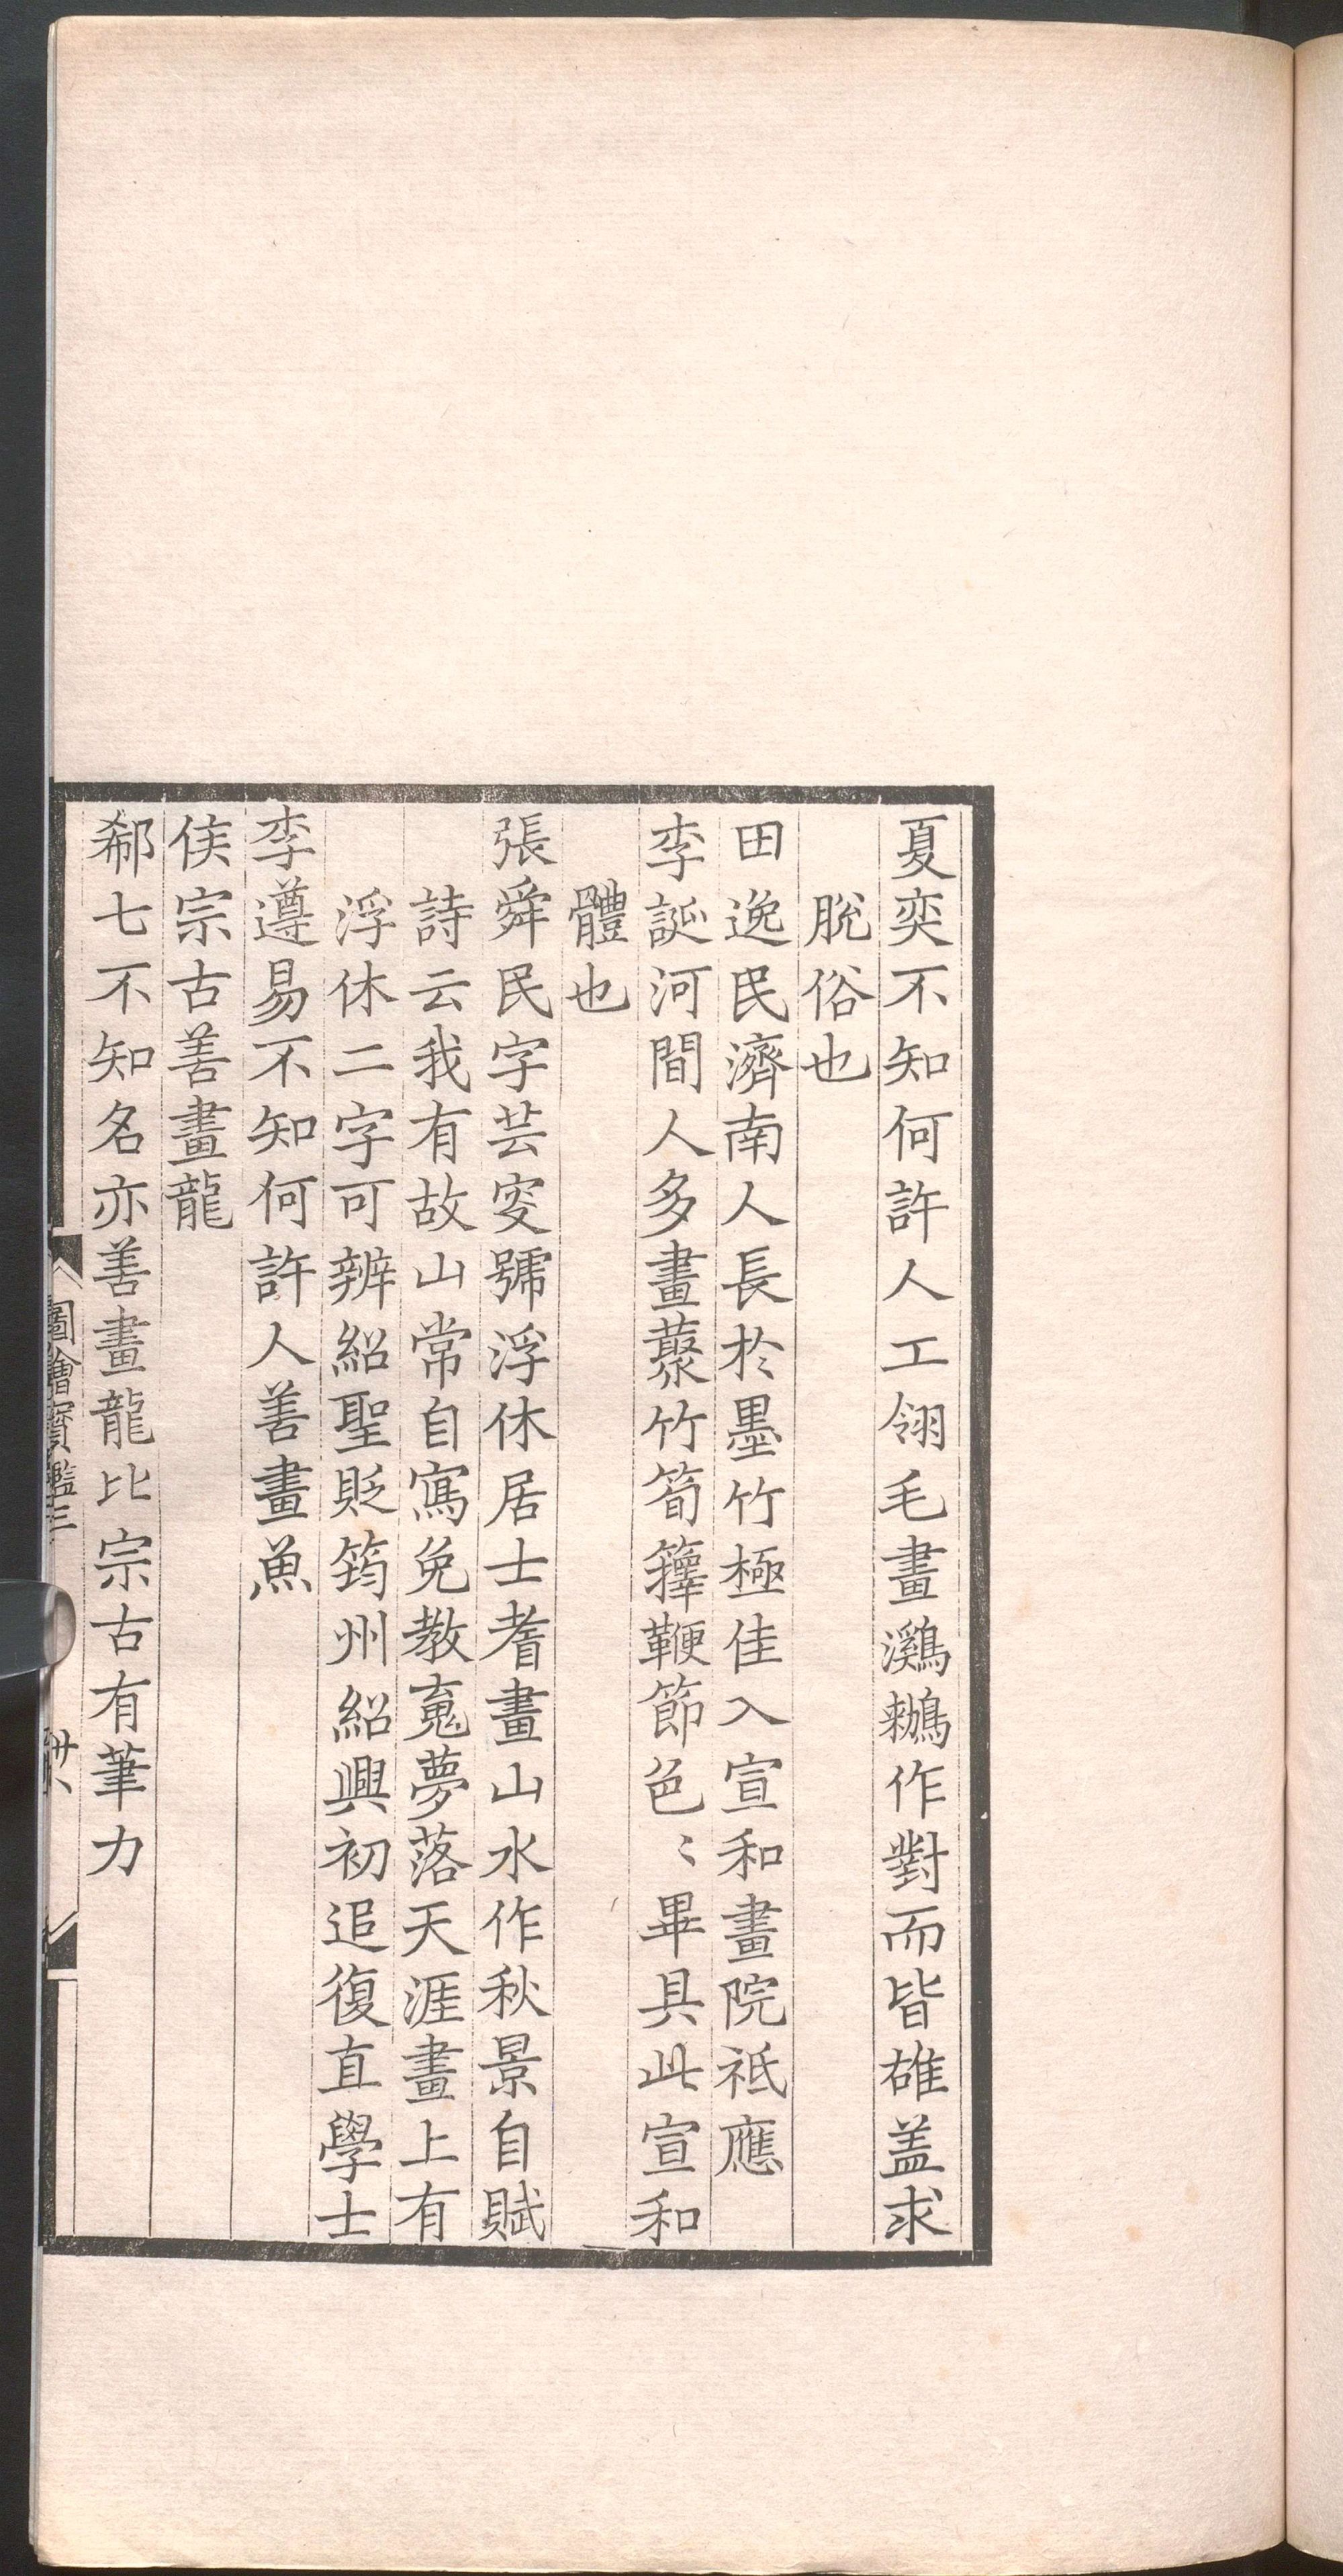 夏奕不知何許人工翎毛畫鸂鶒作對而皆雄盖求
脫俗也
田逸民濟南人長於墨竹極佳入宣和畫院祗應
李誕河間人多畫藂竹筍籜鞭節色〻畢具此宣和
體也
張舜民字芸叟號浮休居士耆畫山水作秋景自賦
詩云我有故山常自寫免教䰟夢落天涯畫上有
浮休二字可辨紹聖貶筠州紹興初追復直學士
李遵易不知何許人善畫魚
侯宗古善畫龍
郗七不知名亦善畫龍比宗古有筆力
圖繪寶鑑三